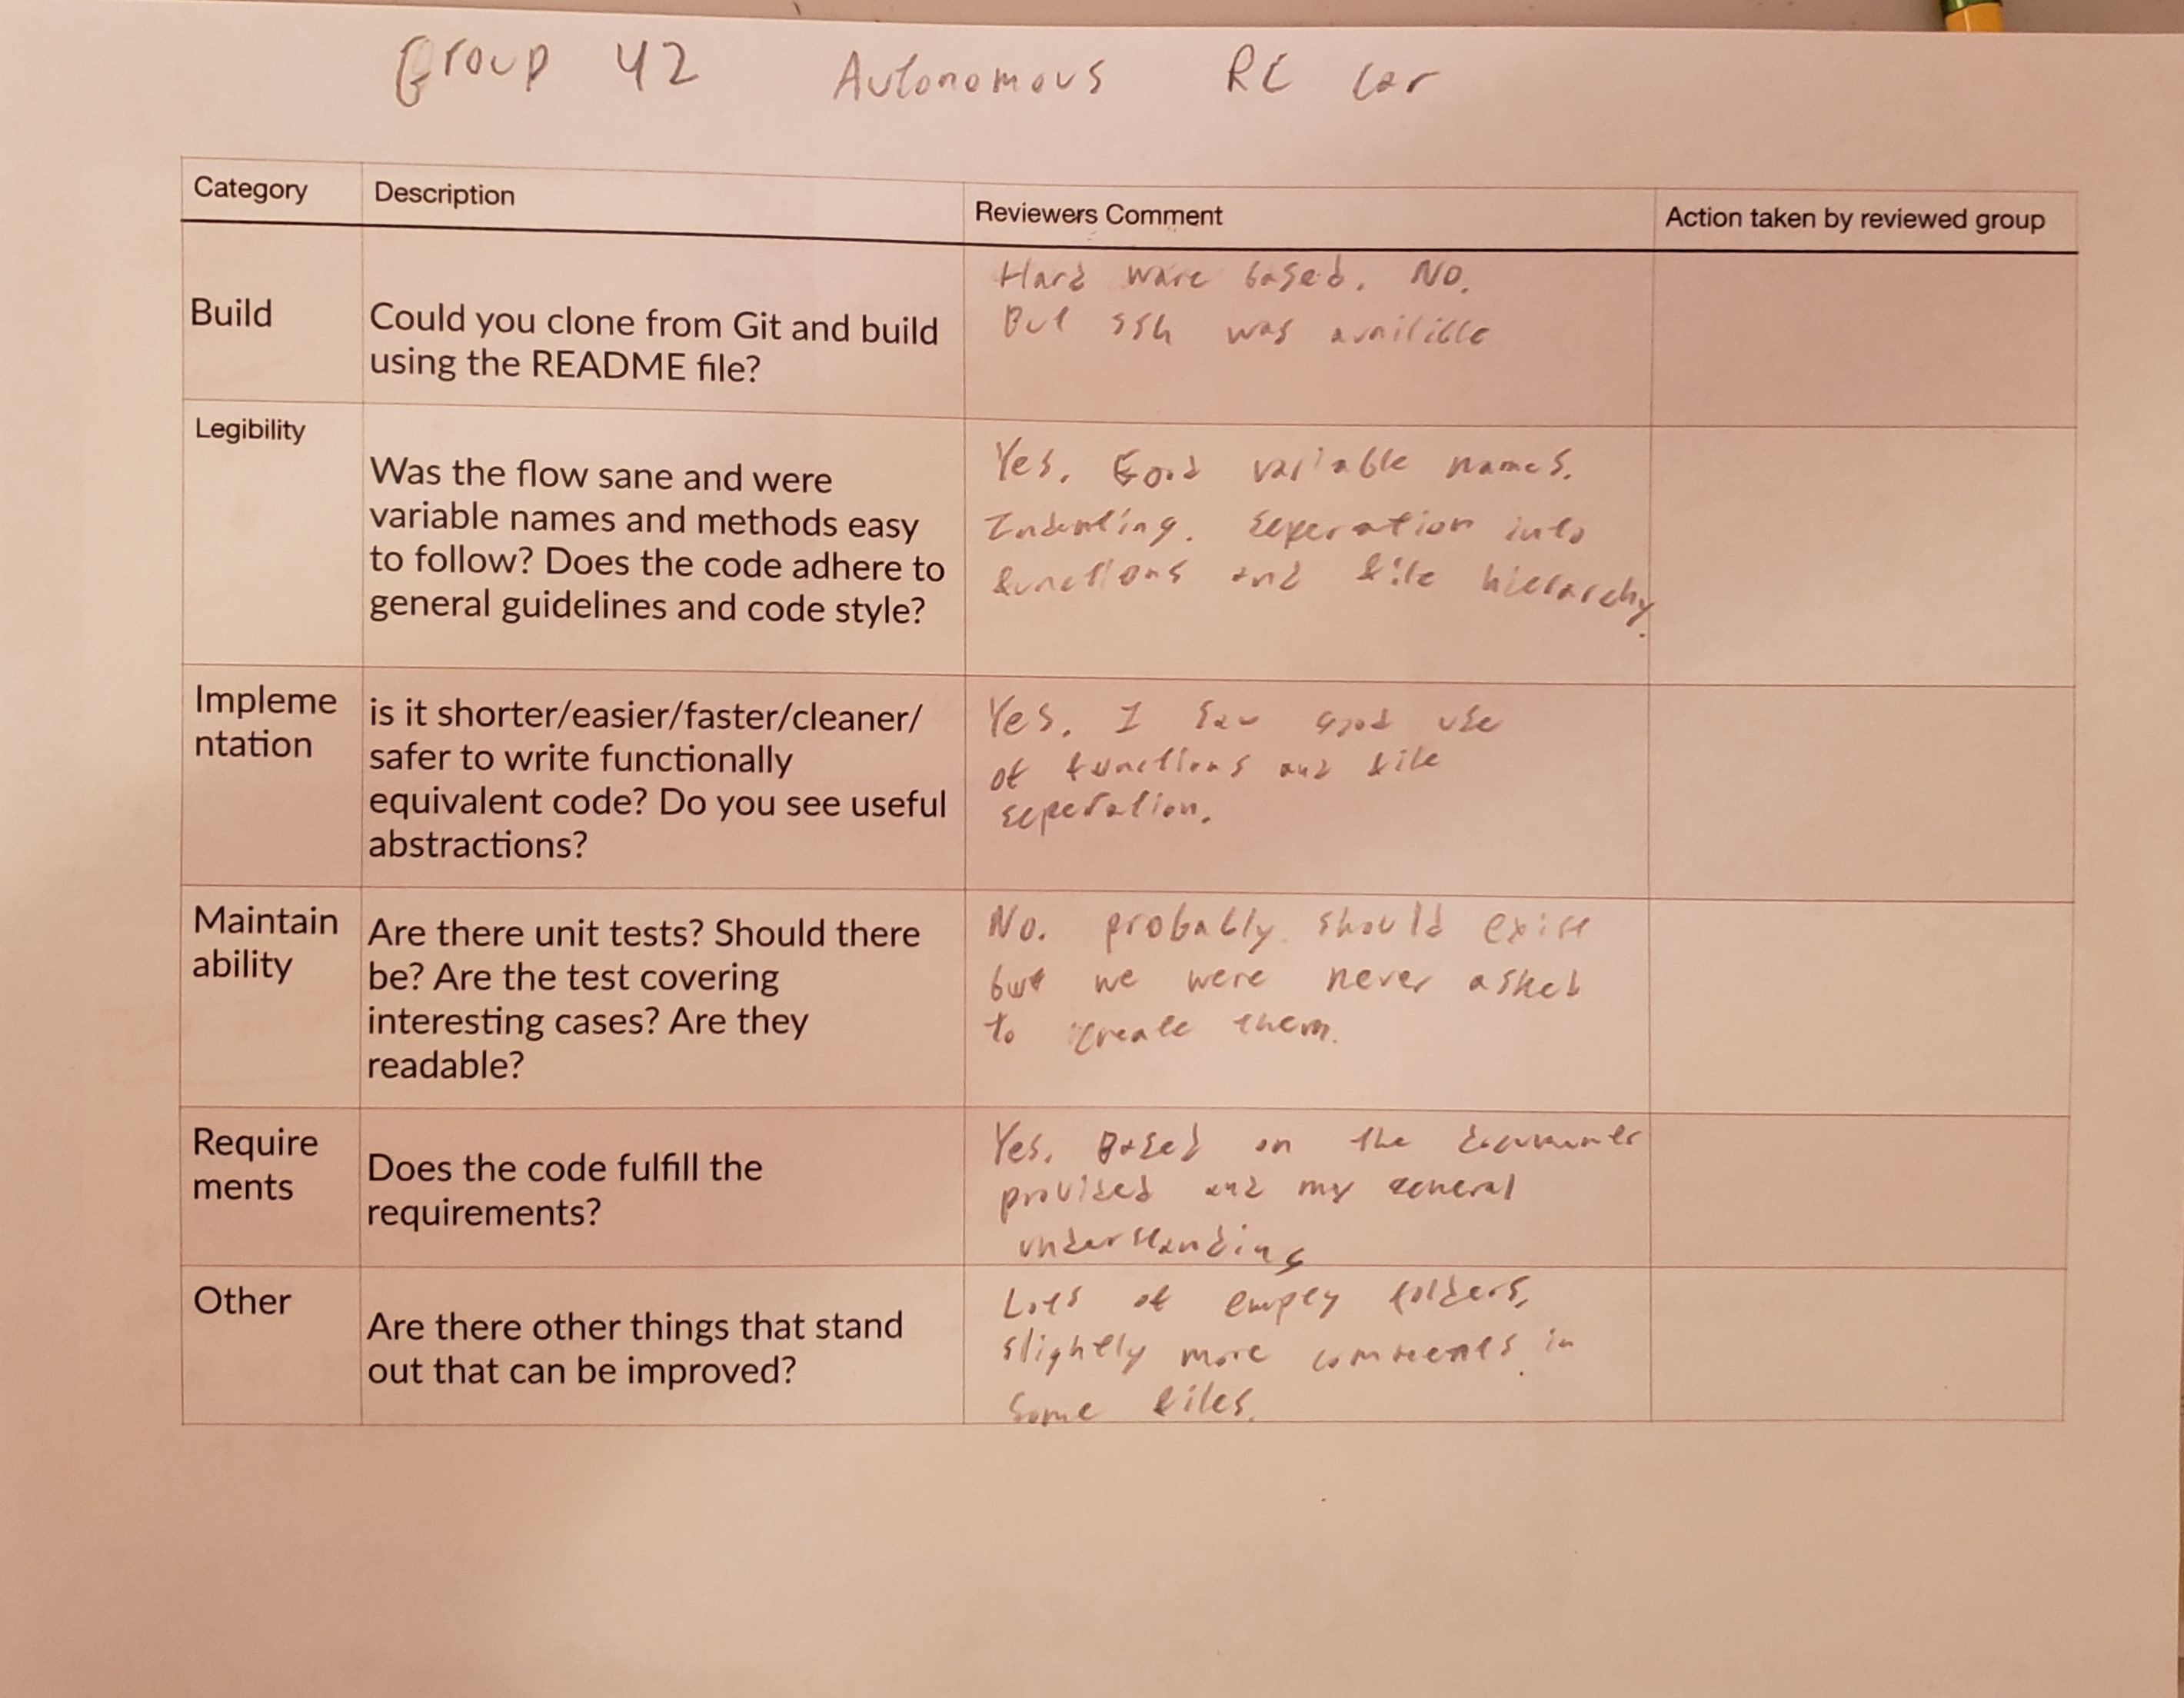 Group 42 Autonomous RC Car
Category
Description
Reviewers Comment
Action taken by reviewed group
Build
Could you clone from Git and build
using the README file?
Hard ware based. No.
But ssh was availible
Legibility
Was the flow sane and were
variable names and methods easy
to follow? Does the code adhere to
general guidelines and code style?
Yes. Good variable names.
Indenting. Seperation into
functions and file hierarchy.
Impleme
ntation
is it shorter/easier/faster/cleaner/
safer to write functionally
equivalent code? Do you see useful
abstractions?
Yes. I saw good use
of functions and file
seperation.
Maintain
ability
Are there unit tests? Should there
be? Are the test covering
interesting cases? Are they
readable?
No. probably should exist
but we were never asked
to create them.
Require
ments
Does the code fulfill the
requirements?
Yes. Based on the
provided and my general
understanding
Other
Are there other things that stand
out that can be improved?
Lots of empty folders.
slightly more comments in
some files.